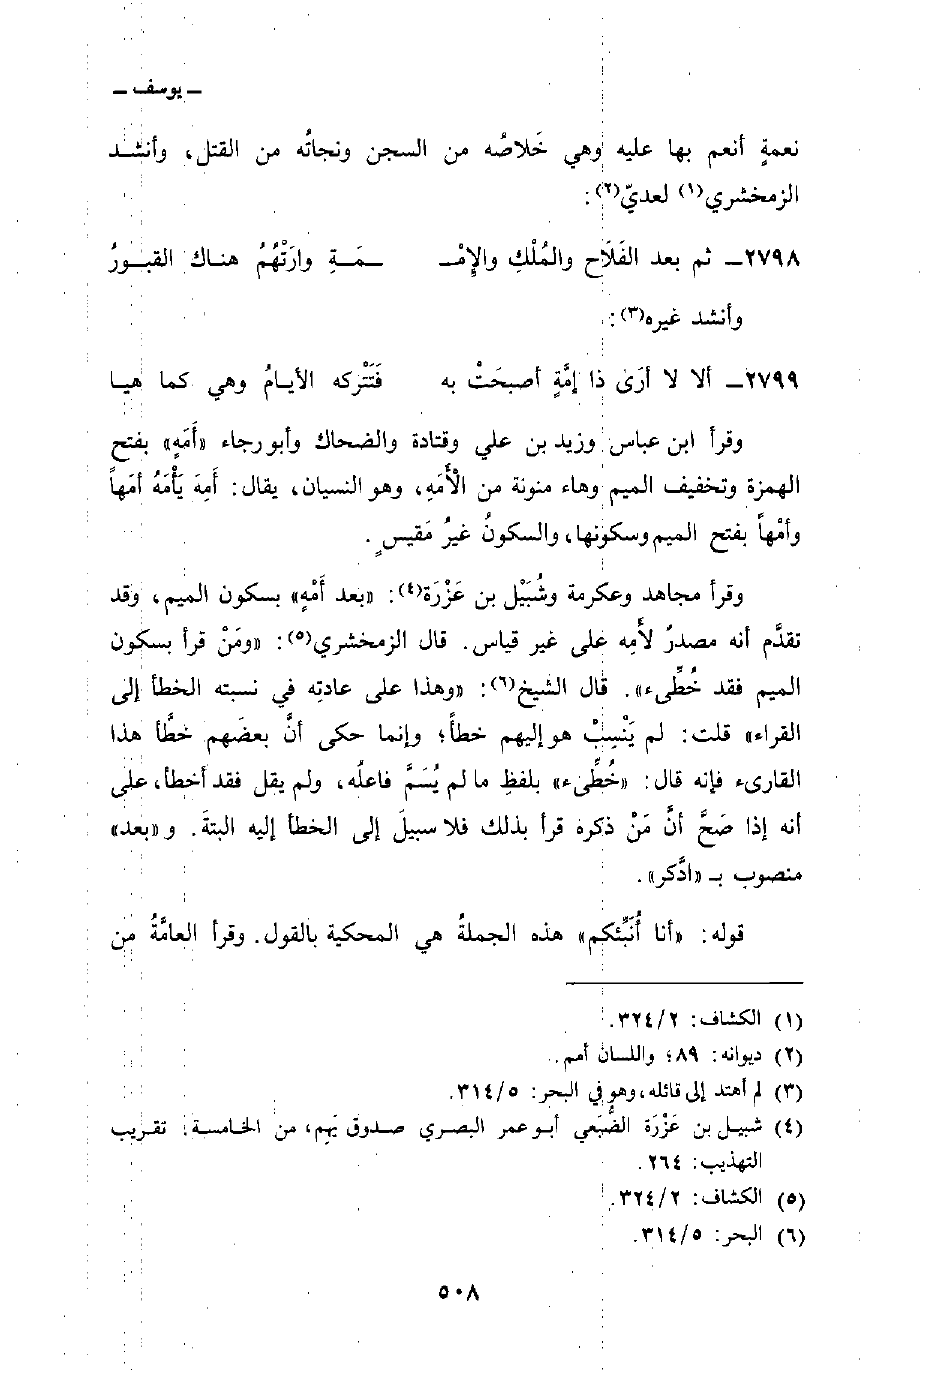 ـ يوسف ـ
نعمةٍ أنعم بها عليه وهي خَلاصُه من السجن ونجاتُه من القتل، وأنشـد
الزمخشري(١) لعديّ(٢):
٢٧٩٨ـ ثم بعد الفَلَاح والمُلْكِ والإِمْـ ـمَـةِ وارَتْهُمُ هنـاك القبـورُ
وأنشد غيره(٣):
٢٧٩٩ـ ألا لا أرَى ذا إمَّةٍ أصبحَتْ به فَتَتْركه الأيـامُ وهي كما هيـا
وقرأ ابن عباس وزيد بن علي وقتادة والضحاك وأبو رجاء «أَمَهٍ» بفتح
الهمزة وتخفيف الميم وهاء منونة من الْأَمَهِ، وهو النسيان، يقال: أَمِهَ يَأْمَهُ أمَهاً
وأمْهاً بفتح الميم وسكونها، والسكونُ غيرُ مَقيسٍ.
وقرأ مجاهد وعكرمة وشُبَيْل بن عَزْرَة(٤): «بعد أَمْهٍ» بسكون الميم، وقد
تقدَّم أنه مصدرُ لأَمِه على غير قياس. قال الزمخشري(٥): «ومَنْ قرأ بسكون
الميم فقد خُطِّىء». قال الشيخ(٦): «وهذا على عادتِه في نسبته الخطأ إلى
القراء» قلت: لم يَنْسِبْ هو إليهم خطأً؛ وإنما حكى أنَّ بعضَهم خطَّأ هذا
القارىء فإنه قال: «خُطِّىء» بلفظِ ما لم يُسَمَّ فاعلُه، ولم يقل فقد أخطأ، على
أنه إذا صَحَّ أنَّ مَنْ ذكره قرأ بذلك فلا سبيلَ إلى الخطأ إليه البتةَ. و «بعد»
منصوب بـ «ادَّكر».
قوله: «أنا أُنَبِّئكم» هذه الجملةُ هي المحكية بالقول. وقرأ العامَّةُ مِن
(١) الكشاف: ٣٢٤/٢.
(٢) ديوانه: ٨٩؛ واللسان أمم.
(٣) لم أهتد إلى قائله، وهو في البحر: ٣١٤/٥.
(٤) شبيـل بن عَزْرَة الضُّبَعي أبو عمر البصري صدوق يَهِم، من الخامسة: تقـريب
التهذيب: ٢٦٤.
(٥) الكشاف: ٣٢٤/٢.
(٦) البحر: ٣١٤/٥.
٥٠٨